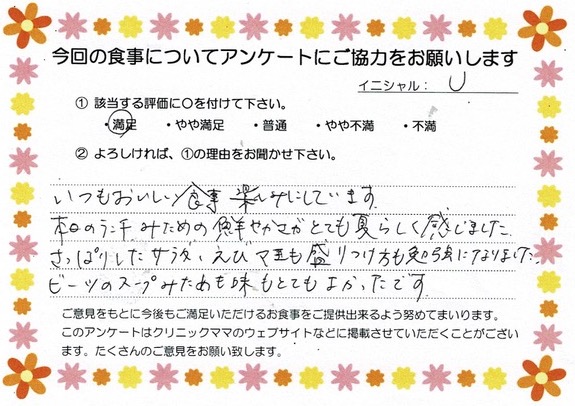 今回の食事についてアンケートにご協力をお願いします
イニシャル： U
① 該当する評価に○を付けて下さい。
・満足 ・やや満足 ・普通 ・やや不満 ・不満
② よろしければ、①の理由をお聞かせ下さい。
いつもおいしい食事 楽しみにしています。
本日のランチ みための鮮やかさがとても夏らしく感じました。
さっぱりしたサラダ、えびマヨも盛りつけ方も勉強になりました。
ビーツのスープみためも味もとてもよかったです。
ご意見をもとに今後もご満足いただけるお食事をご提供出来るよう努めてまいります。
このアンケートはクリニックママのウェブサイトなどに掲載させていただくことがござい
ます。たくさんのご意見をお願い致します。